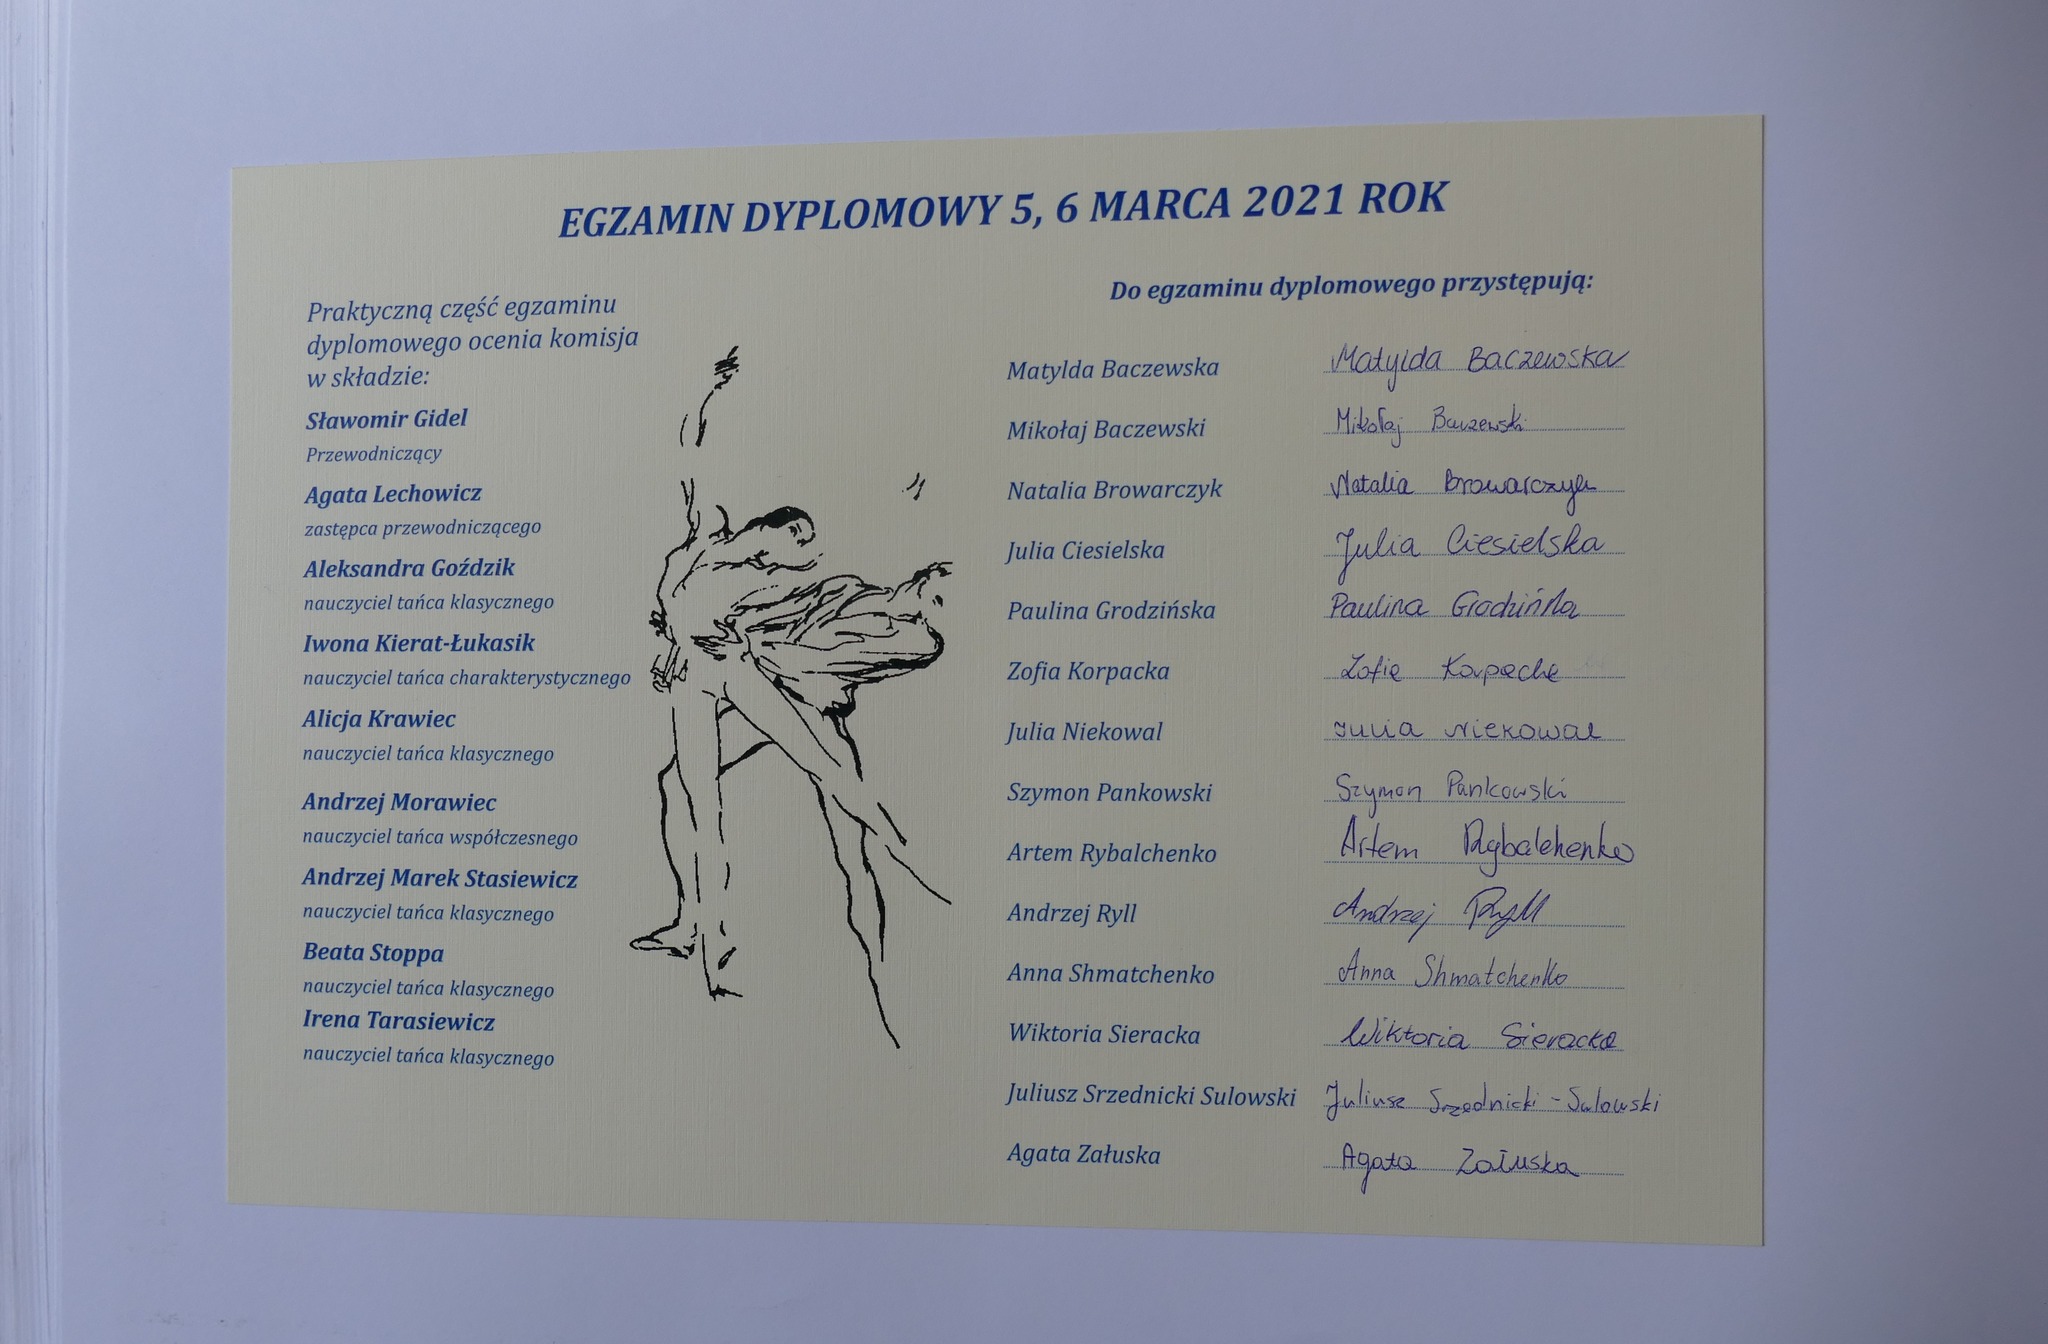 EGZAMIN DYPLOMOWY 5, 6 MARCA 2021 ROK
Praktyczną część egzaminu
dyplomowego ocenia komisja
w składzie:
Sławomir Gidel
Przewodniczący
Agata Lechowicz
zastępca przewodniczącego
Aleksandra Goździk
nauczyciel tańca klasycznego
Iwona Kierat-Łukasik
nauczyciel tańca charakterystycznego
Alicja Krawiec
nauczyciel tańca klasycznego
Andrzej Morawiec
nauczyciel tańca współczesnego
Andrzej Marek Stasiewicz
nauczyciel tańca klasycznego
Beata Stoppa
nauczyciel tańca klasycznego
Irena Tarasiewicz
nauczyciel tańca klasycznego
Do egzaminu dyplomowego przystępują:
Matylda Baczewska Matylda Baczewska
Mikołaj Baczewski Mikołaj Baczewski
Natalia Browarczyk Natalia Browarczyk
Julia Ciesielska Julia Ciesielska
Paulina Grodzińska Paulina Grodzińska
Zofia Korpacka Zofia Korpacka
Julia Niekowal Julia Niekowal
Szymon Pankowski Szymon Pankowski
Artem Rybalchenko Artem Rybalchenko
Andrzej Ryll Andrzej Ryll
Anna Shmatchenko Anna Shmatchenko
Wiktoria Sieracka Wiktoria Sieracka
Juliusz Srzednicki Sulowski Juliusz Srzednicki-Sulowski
Agata Załuska Agata Załuska